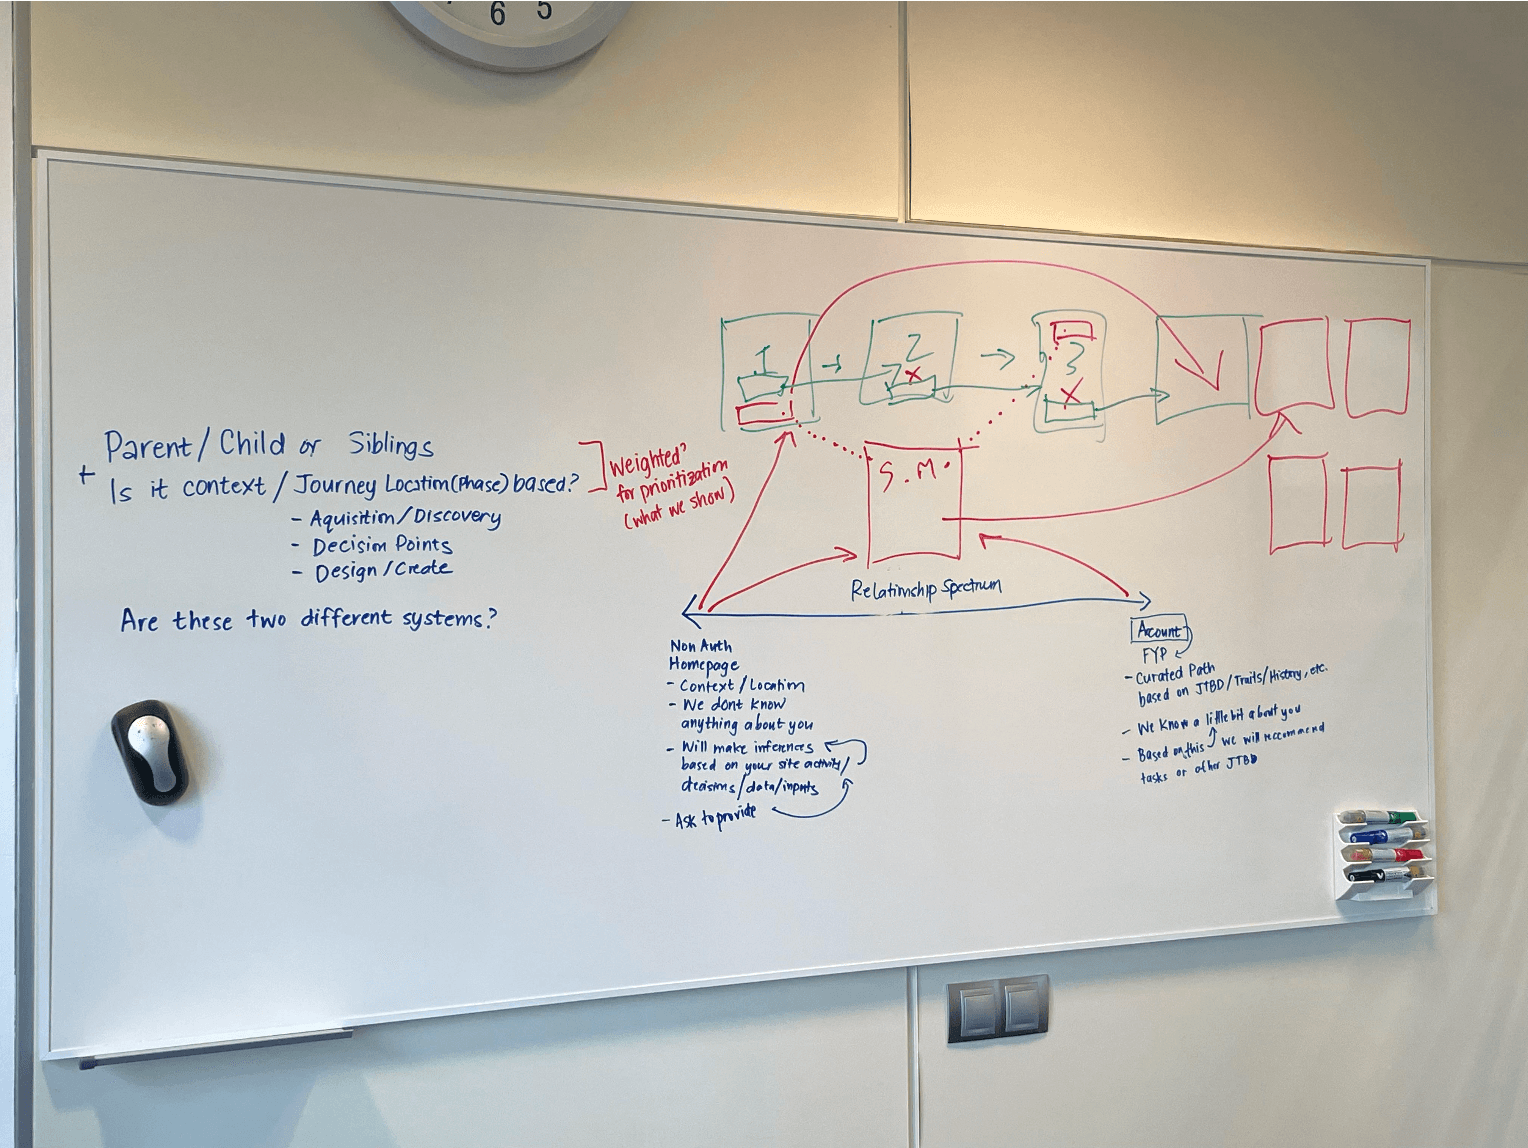 6 5
1
2
3
X
X
S.M.
Parent/Child or Siblings
+
Is it context/Journey Location(Phase) based?
- Aquisition/Discovery
- Decision Points
- Design/Create
Are these two different systems?
Weighted?
for prioritization
(what we show)
Relationship Spectrum
Non Auth
Homepage
- Context/Location
- We dont know
anything about you
- Will make inferences
based on your site activity/
decisions/data/inputs
- Ask to provide
Account
FYP
- Curated Path
based on JTBD/Traits/History, etc.
- We know a little bit about you
- Based on this we will reccomend
tasks or other JTBD